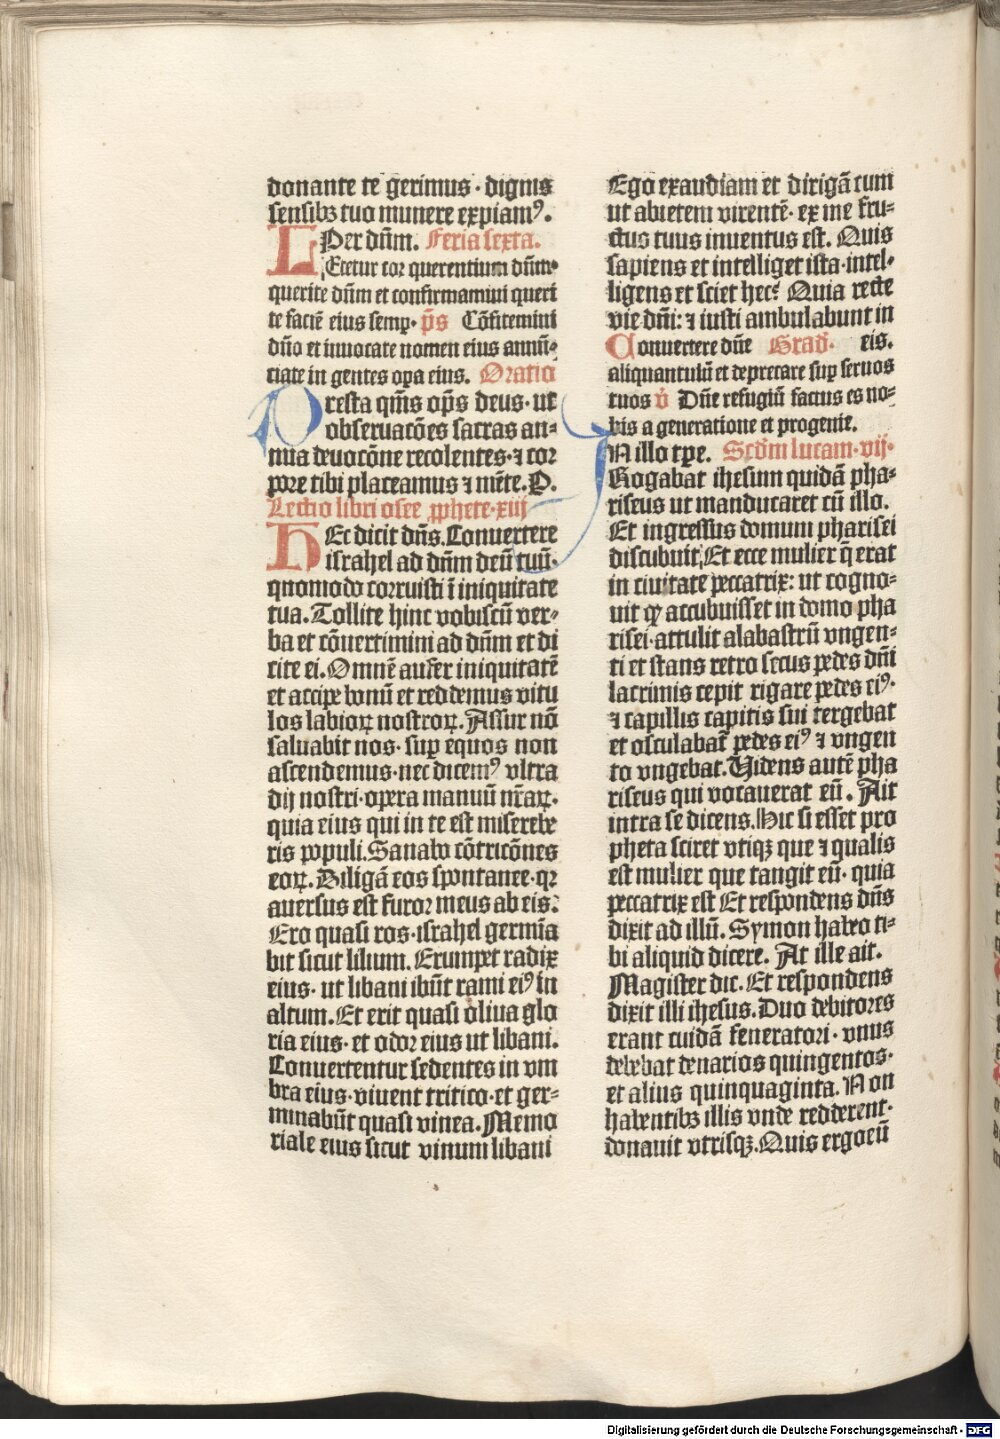 donante te gerimus · dignis
sensibꝫ tuo munere expiamꝰ.
Per dn̄m. Feria sexta.
LEtetur cor querentium dn̄m·
querite dn̄m et confirmamini queri
te faciē eius semp̲· p̄s Cōfitemini
dn̄o et inuocate nomen eius annū⸗
ciate in gentes op̲a eius. Oratio
Presta qm̄s op̄s deus· ut
obseruacōes sacras an⸗
nua deuocōne recolentes· ⁊ cor
pore tibi placeamus ⁊ mēte. P.
Lectio libri osee ꝓphete·xiij
HEc dicit dn̄s. Conuertere
israhel ad dn̄m deū tuū·
quomodo corruisti ī iniquitate
tua. Tollite hinc vobiscū ver⸗
ba et cōuertimini ad dn̄m et di
cite ei. Omnē aufer iniquitatē
et accipe bonū et reddemus vitu
los labioꝝ nostroꝝ. Assur nō
saluabit nos· sup̲ equos non
ascendemus· nec dicemꝰ vltra
dij nostri· opera manuū nr̄aꝝ·
quia eius qui in te est misereb̲e
ris populi. Sanabo cōtricōnes
eoꝝ. Diligā eos spontanee· qꝛ
auersus est furor meus ab eis:
Ero quasi ros· israhel germīa
bit sicut lilium. Erumpet radix
eius· ut libani ibūt rami eiꝰ in
altum. Et erit quasi oliua glo
ria eius· et odor eius ut libani.
Conuertentur sedentes in vm
bra eius· viuent tritico· et ger⸗
minabūt quasi vinea. Memo
riale eius sicut vinum libani
Ego exaudiam et dirigā eum
ut abietem virentē· ex me fru⸗
ctus tuus inuentus est. Quis
sapiens et intelliget ista· intel⸗
ligens et sciet hec? Quia recte
vie dn̄i: ⁊ iusti ambulabunt in
Conuertere dn̄e Grad̄· eis.
aliquantulū et deprecare sup̲ seruos
tuos v̄ Dn̄e refugiū factus es no⸗
bis a generatione et progenie.
IN illo tp̲e. Scd̄m lucam·vij·
Rogabat ihesum quidā pha⸗
riseus ut manducaret cū illo.
Et ingressus domum pharisei
discubuit, Et ecce mulier q̄ erat
in ciuitate peccatrix: ut cogno⸗
uit ꝙ accubuisset in domo pha
risei· attulit alabastrū vngen⸗
ti et stans retro secus pedes dn̄i
lacrimis cepit rigare pedes eiꝰ·
⁊ capillis capitis sui tergebat
et osculabat̄ pedes eiꝰ ⁊ vngen
to vngebat. Videns autē pha
riseus qui vocauerat eū. Ait
intra se dicens. Hic si esset pro
pheta sciret vtiqꝫ que ⁊ qualis
est mulier que tangit eū· quia
peccatrix est Et respondens dn̄s
dixit ad illū. Symon habeo ti⸗
bi aliquid dicere. At ille ait.
Magister dic. Et respondens
dixit illi ihesus. Duo debitores
erant cuidā feneratori· vnus
debebat denarios quingentos·
et alius quinquaginta. Non
habentibꝫ illis vnde redderent·
donauit vtrisqꝫ. Quis ergo eū
Digitalisierung gefördert durch die Deutsche Forschungsgemeinschaft - DFG